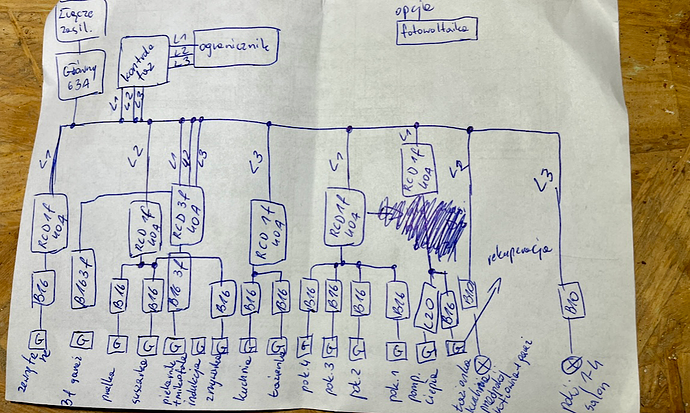 Łącze
zasil.
Główny
63A
kontrola
faz
L1
L2
L3
ogranicznik
opcja
fotowoltaika
L1
L2
L3
L1
L2
L1
L2
L3
L3
L1
L1
L2
L3
RCD 1f
40A
RCD 1f
40A
RCD 3f
40A
RCD 1f
40A
RCD 1f
40A
RCD 1f
40A
B16
B16 3f
B16
B16
B16 3f
B16
B16
B16
B16
B16
B16
B16
C20
B16
B10
B10
G
G
G
G
G
G
G
G
G
G
G
G
G
G
rekuperacja
3f garaż
pralka
suszarka
piekarnik
+ mikrofala
indukcja
zmywarka
kuchnia
łazienka
pok 4
pok 3
pok 2
pok 1
pomp.
ciepła
łazienka
kuchnia
kotłownia + garaż
pok. 1-4
salon